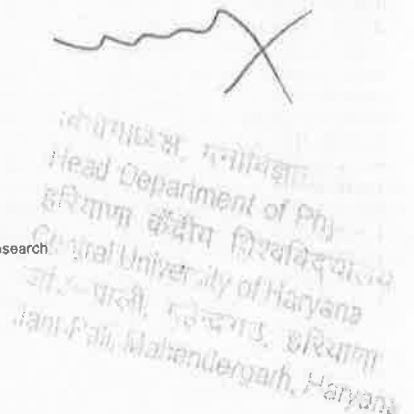 Head Department of
हरियाणा केंद्रीय विश्वविद्यालय
search
Central University of Haryana
पाली, महेन्द्रगढ़, हरियाणा
Jant-Pali, Mahendergarh, Haryana